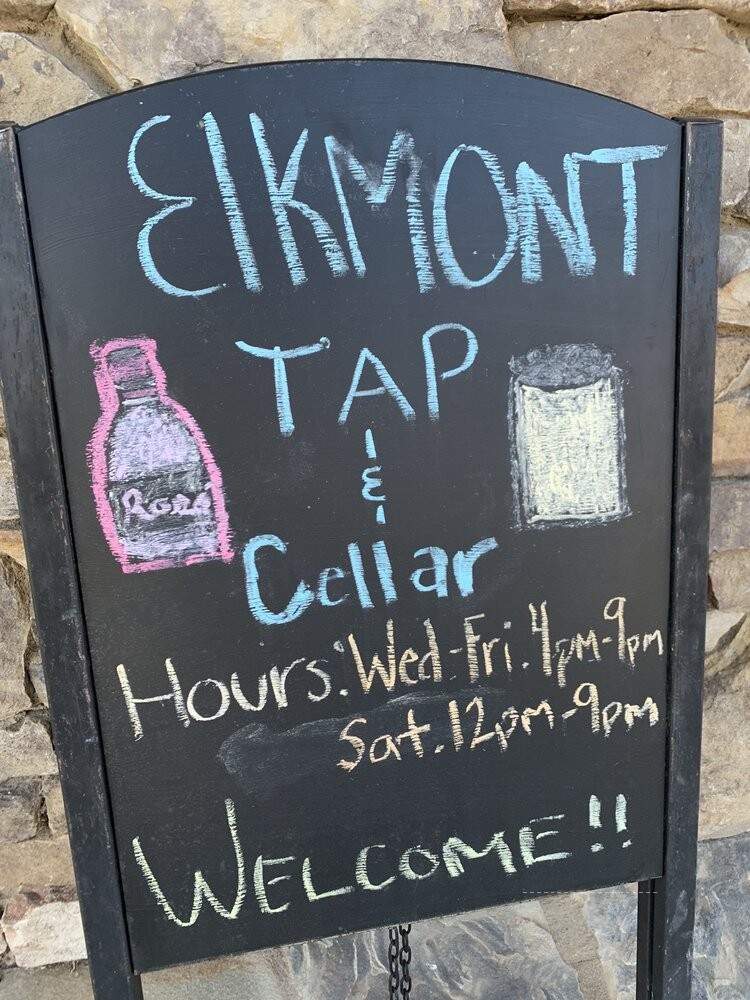 ElKMONT
TAP
&
Cellar
Rosé
Hours: Wed-Fri. 4pm-9pm
Sat. 12pm-9pm
WELCOME!!